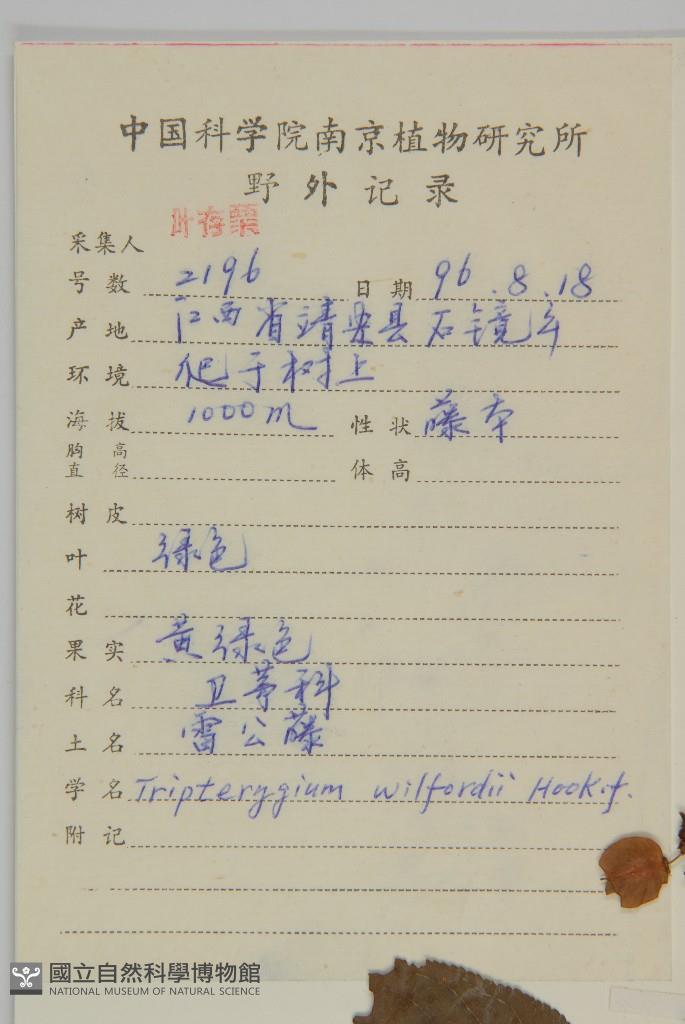 中国科学院南京植物研究所
野外记录
采集人 叶存粟
号数 2196 日期 96.8.18
产地 江西省靖安县石镜乡
环境 爬于树上
海拔 1000m 性状 藤本
胸高直径 体高
树皮
叶 绿色
花
果实 黄绿色
科名 卫茅科
土名 雷公藤
学名 Tripterygium wilfordii Hook.f.
附记
國立自然科學博物館
NATIONAL MUSEUM OF NATURAL SCIENCE